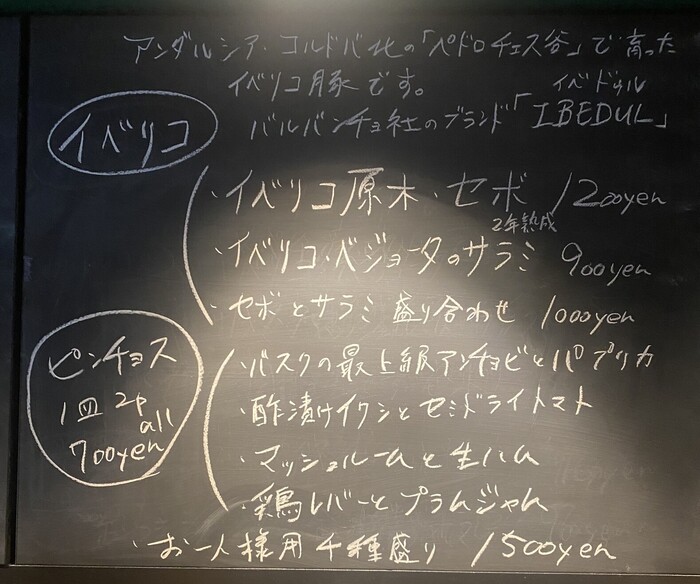 アンダルシア・コルドバ北の「ペドロチェス谷」で育った
イベリコ豚です。
イベドゥル
バルバンチョ社のブランド「IBEDUL」
イベリコ
・イベリコ原木・セボ 1200yen
2年熟成
・イベリコ・ベジョータのサラミ 900yen
・セボとサラミ盛り合わせ 1000yen
ピンチョス
1皿 2p
all
700yen
・バスクの最上級アンチョビとパプリカ
・酢漬けイワシとセミドライトマト
・マッシュルームと生ハム
・鶏レバーとプラムジャム
・お一人様用4種盛り 1500yen